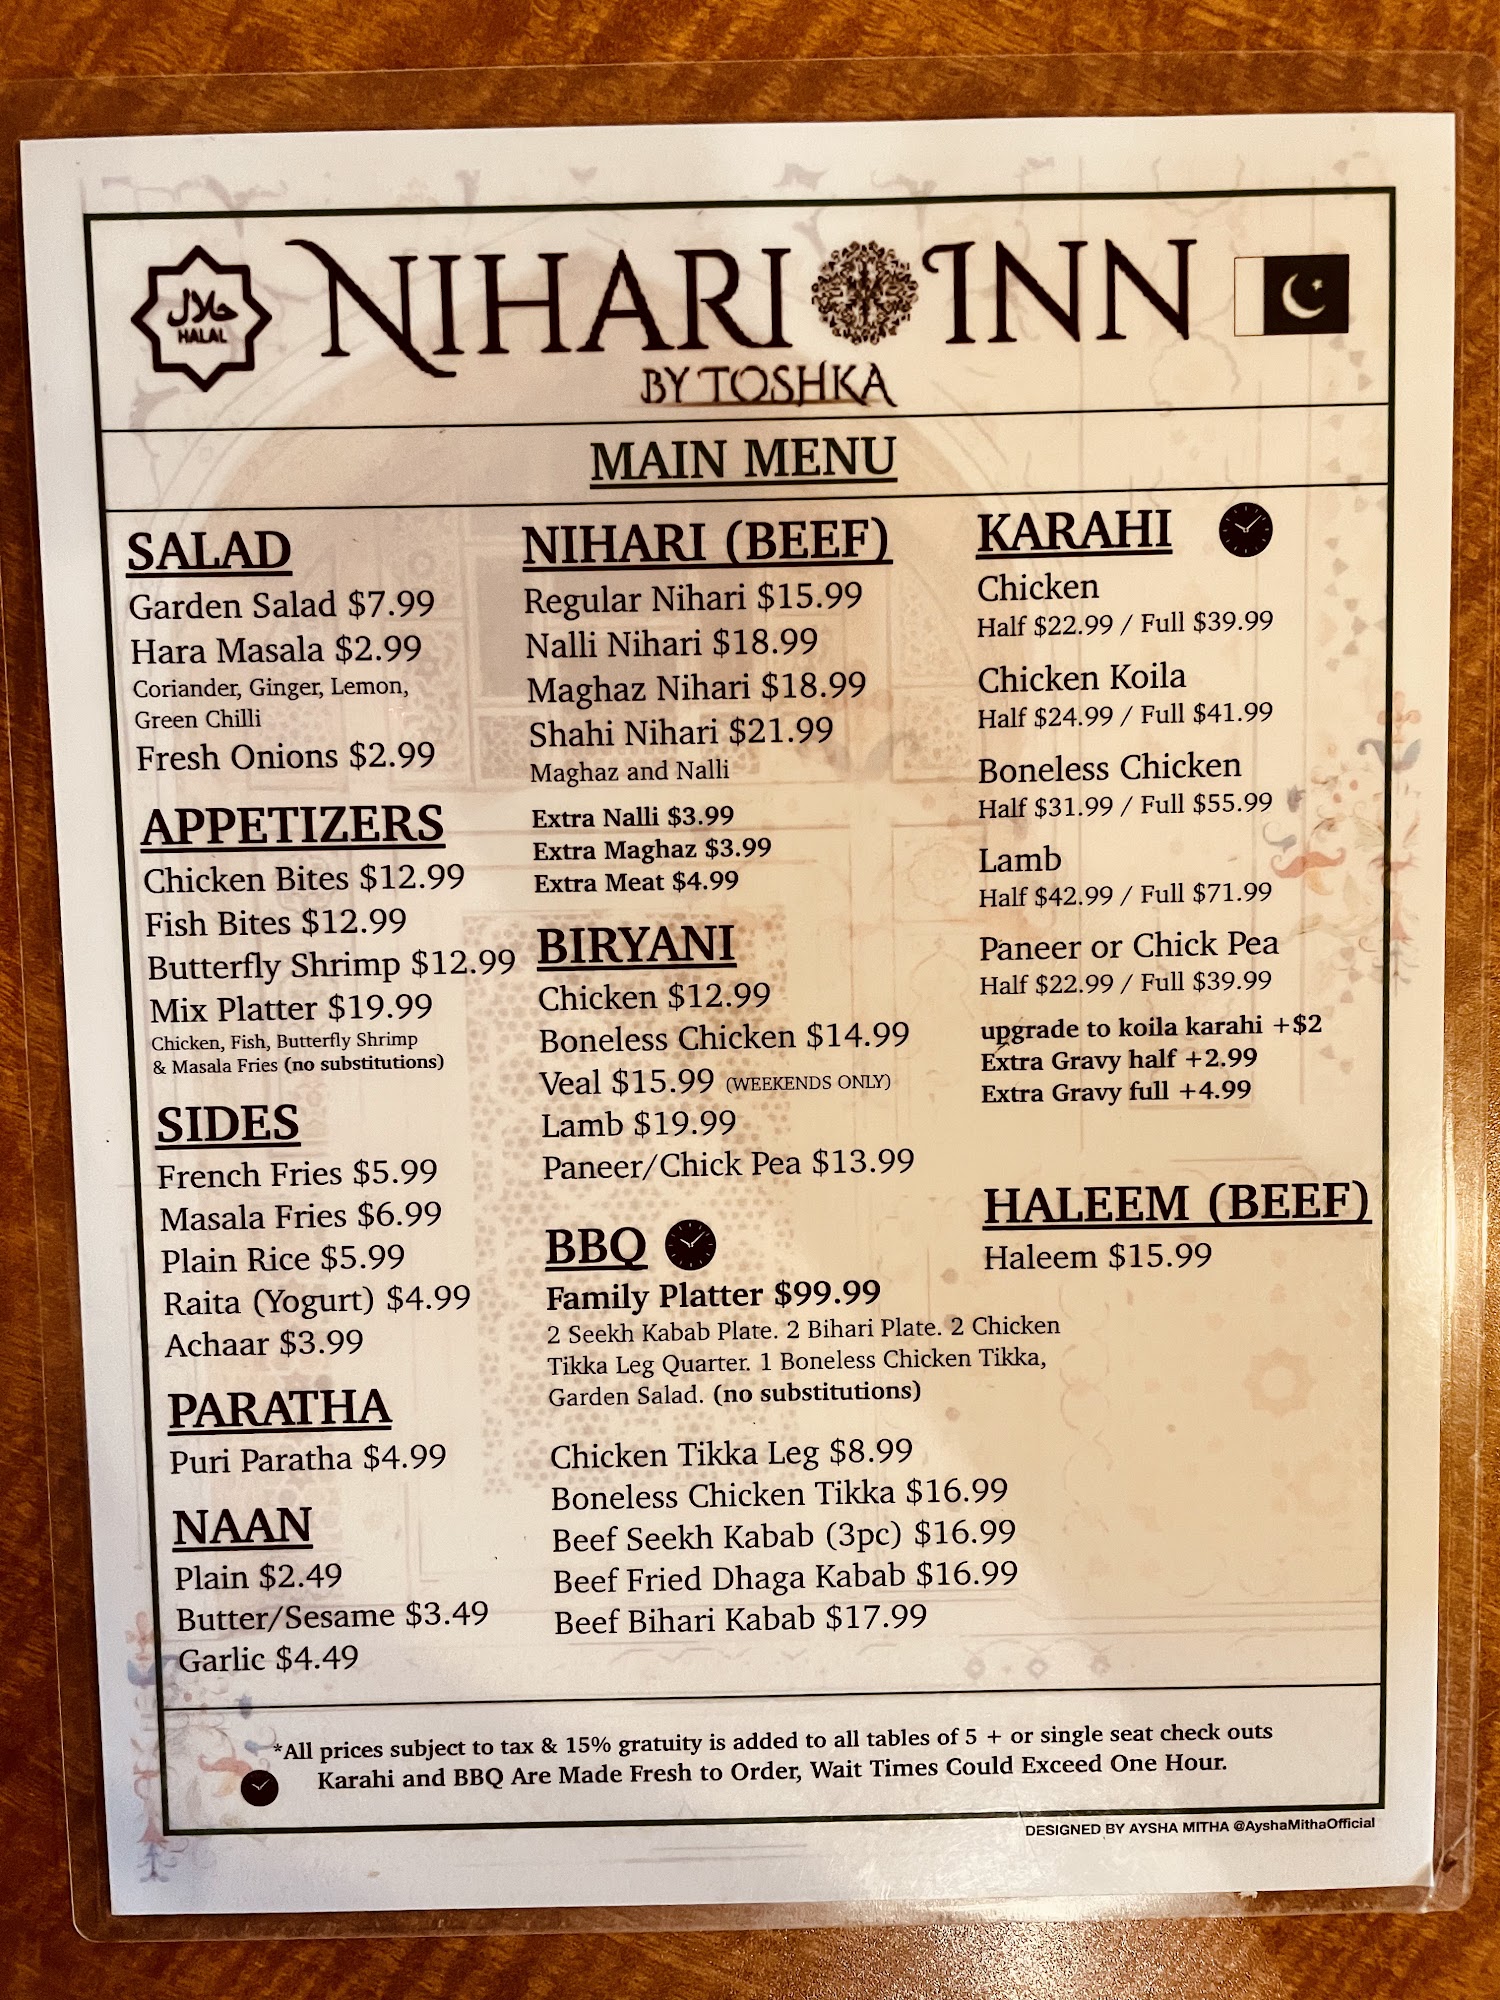 حلال
HALAL
NIHARI INN
BY TOSHKA
MAIN MENU
SALAD
Garden Salad $7.99
Hara Masala $2.99
Coriander, Ginger, Lemon,
Green Chilli
Fresh Onions $2.99
APPETIZERS
Chicken Bites $12.99
Fish Bites $12.99
Butterfly Shrimp $12.99
Mix Platter $19.99
Chicken, Fish, Butterfly Shrimp
& Masala Fries (no substitutions)
SIDES
French Fries $5.99
Masala Fries $6.99
Plain Rice $5.99
Raita (Yogurt) $4.99
Achaar $3.99
PARATHA
Puri Paratha $4.99
NAAN
Plain $2.49
Butter/Sesame $3.49
Garlic $4.49
NIHARI (BEEF)
Regular Nihari $15.99
Nalli Nihari $18.99
Maghaz Nihari $18.99
Shahi Nihari $21.99
Maghaz and Nalli
Extra Nalli $3.99
Extra Maghaz $3.99
Extra Meat $4.99
BIRYANI
Chicken $12.99
Boneless Chicken $14.99
Veal $15.99 (WEEKENDS ONLY)
Lamb $19.99
Paneer/Chick Pea $13.99
BBQ
Family Platter $99.99
2 Seekh Kabab Plate. 2 Bihari Plate. 2 Chicken
Tikka Leg Quarter. 1 Boneless Chicken Tikka,
Garden Salad. (no substitutions)
Chicken Tikka Leg $8.99
Boneless Chicken Tikka $16.99
Beef Seekh Kabab (3pc) $16.99
Beef Fried Dhaga Kabab $16.99
Beef Bihari Kabab $17.99
KARAHI
Chicken
Half $22.99 / Full $39.99
Chicken Koila
Half $24.99 / Full $41.99
Boneless Chicken
Half $31.99 / Full $55.99
Lamb
Half $42.99 / Full $71.99
Paneer or Chick Pea
Half $22.99 / Full $39.99
upgrade to koila karahi +$2
Extra Gravy half +2.99
Extra Gravy full +4.99
HALEEM (BEEF)
Haleem $15.99
*All prices subject to tax & 15% gratuity is added to all tables of 5 + or single seat check outs
Karahi and BBQ Are Made Fresh to Order, Wait Times Could Exceed One Hour.
DESIGNED BY AYSHA MITHA @AyshaMithaOfficial